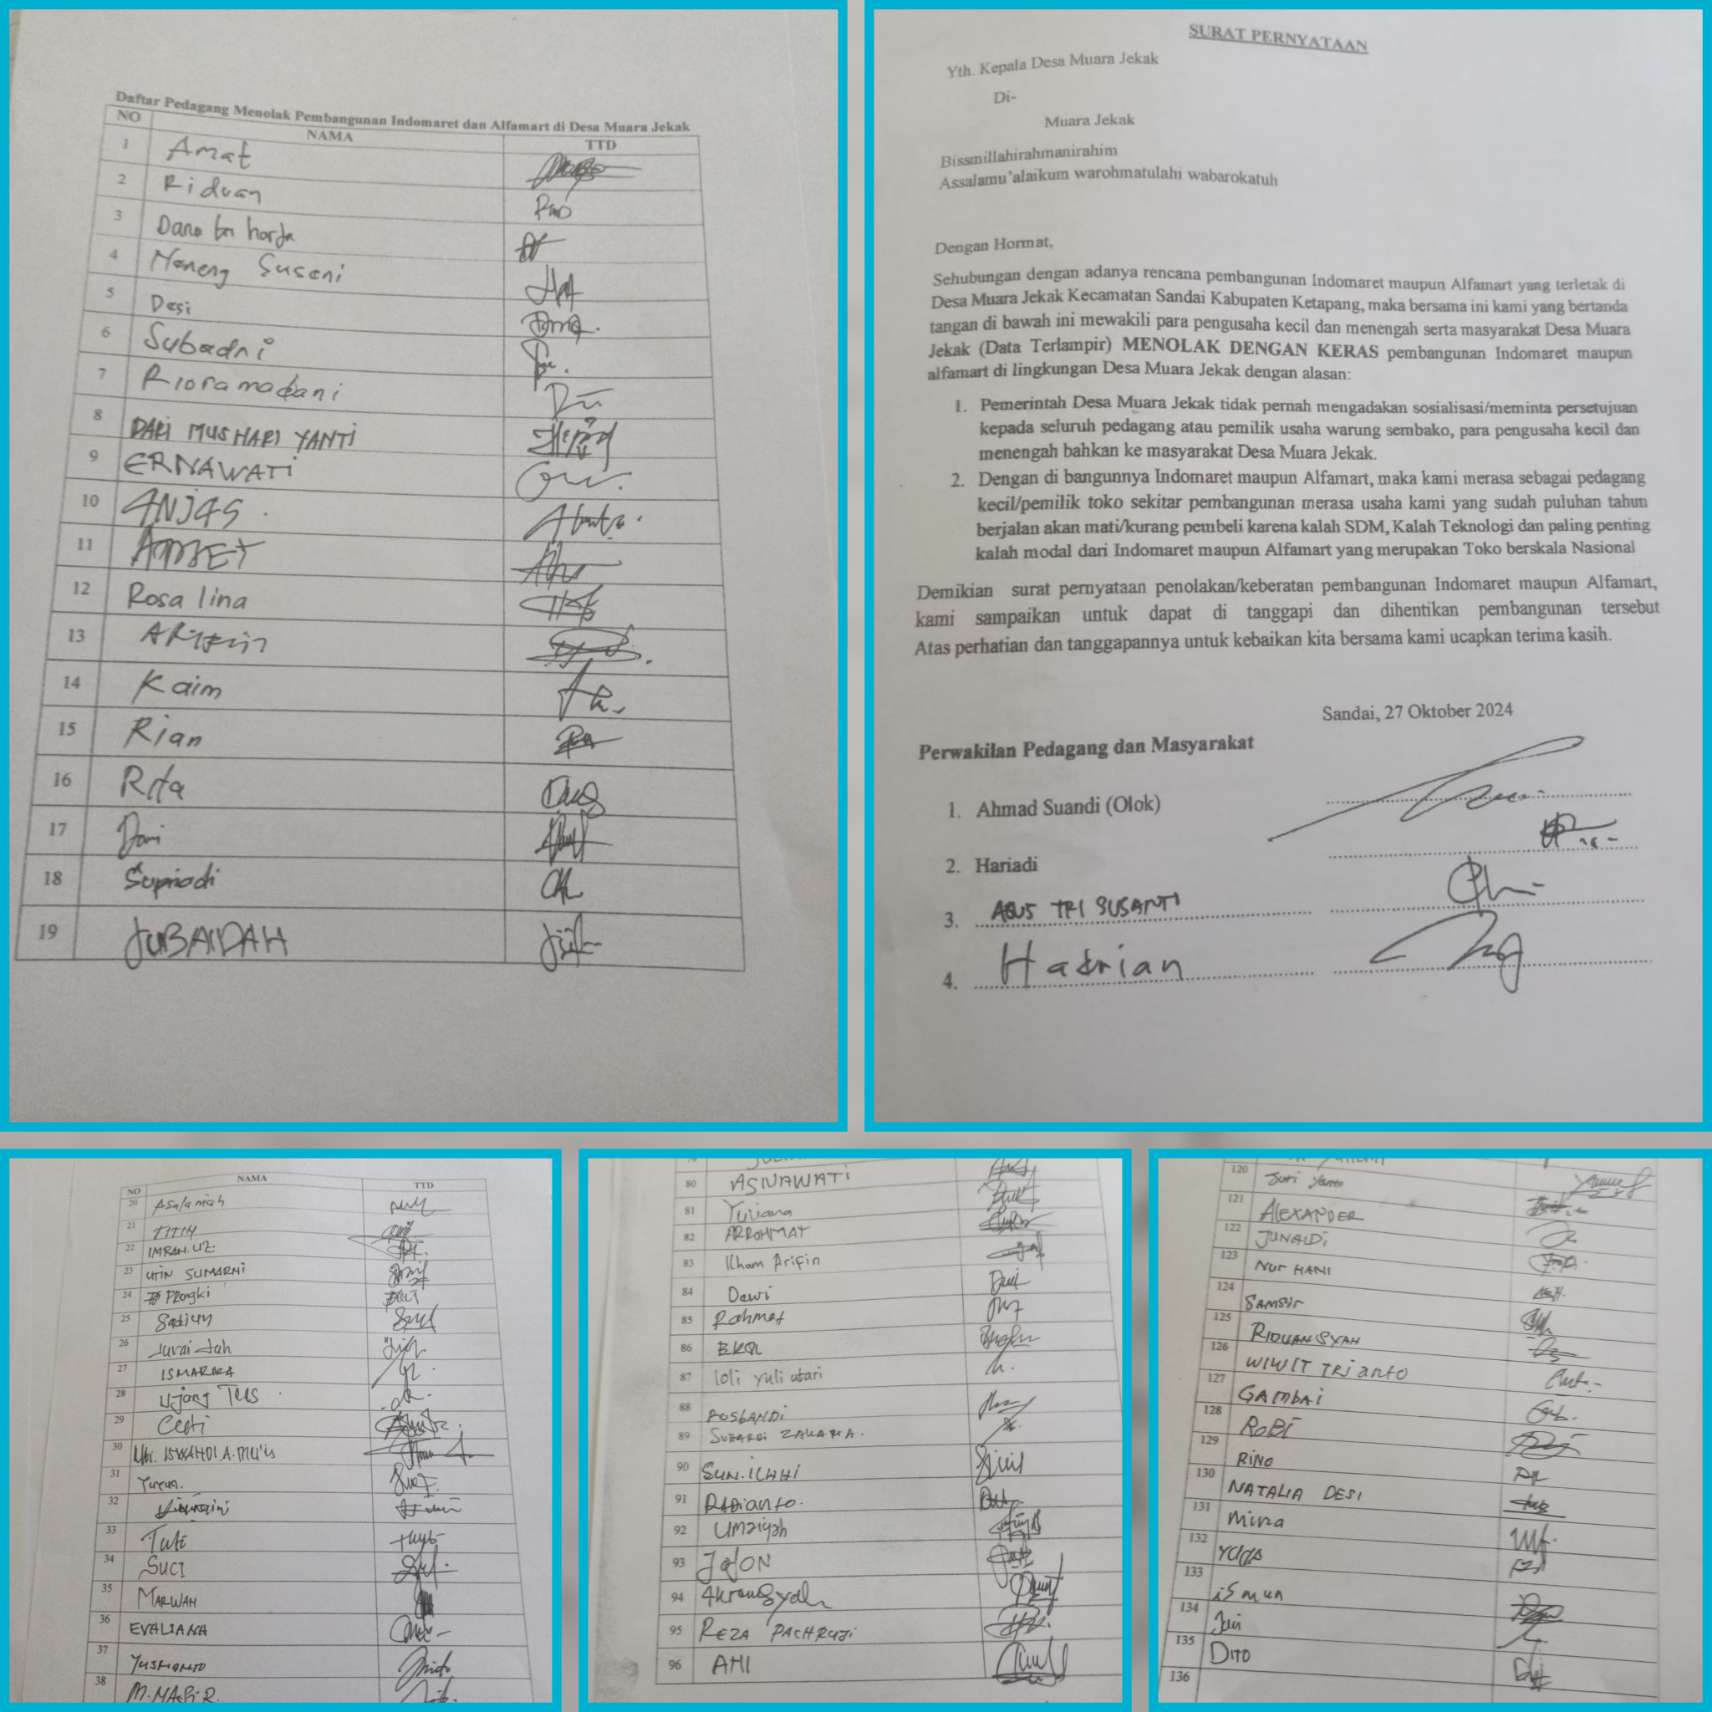 Daftar Pedagang Menolak Pembangunan Indomaret dan Alfamart di Desa Muara Jekak
NO NAMA TTD
1 Amat
2 Riduan
3
4 Neneng Suseni
5 Desi
6 Subadri
7 Rioramadani
8 DARI MUSHARI YANTI
9 ERNAWATI
10 ANJAS
11
12 Rosalina
13 ARIFIN
14 Kaim
15 Rian
16 Rita
17
18 Supriadi
19 JUBAIDAH
SURAT PERNYATAAN
Yth. Kepala Desa Muara Jekak
Di-
Muara Jekak
Bissmillahirahmanirahim
Assalamu’alaikum warohmatulahi wabarokatuh
Dengan Hormat,
Sehubungan dengan adanya rencana pembangunan Indomaret maupun Alfamart yang terletak di
Desa Muara Jekak Kecamatan Sandai Kabupaten Ketapang, maka bersama ini kami yang bertanda
tangan di bawah ini mewakili para pengusaha kecil dan menengah serta masyarakat Desa Muara
Jekak (Data Terlampir) MENOLAK DENGAN KERAS pembangunan Indomaret maupun
alfamart di lingkungan Desa Muara Jekak dengan alasan:
1. Pemerintah Desa Muara Jekak tidak pernah mengadakan sosialisasi/meminta persetujuan
kepada seluruh pedagang atau pemilik usaha warung sembako, para pengusaha kecil dan
menengah bahkan ke masyarakat Desa Muara Jekak.
2. Dengan di bangunnya Indomaret maupun Alfamart, maka kami merasa sebagai pedagang
kecil/pemilik toko sekitar pembangunan merasa usaha kami yang sudah puluhan tahun
berjalan akan mati/kurang pembeli karena kalah SDM, Kalah Teknologi dan paling penting
kalah modal dari Indomaret maupun Alfamart yang merupakan Toko berskala Nasional
Demikian surat pernyataan penolakan/keberatan pembangunan Indomaret maupun Alfamart,
kami sampaikan untuk dapat di tanggapi dan dihentikan pembangunan tersebut
Atas perhatian dan tanggapannya untuk kebaikan kita bersama kami ucapkan terima kasih.
Sandai, 27 Oktober 2024
Perwakilan Pedagang dan Masyarakat
1. Ahmad Suandi (Olok)
2. Hariadi
3. AGUS TRI SUSANTI
4. Hadrian
NO NAMA TTD
20 Asalamiah
21 TITIH
22 IMRAN.UZ
23 UTIN SUMARNI
24 Prongki
25
26 Juraidah
27 ISMARNA
28 Ujang TUS
29 Cecti
30
31
32
33 Tute
34 SUCI
35 MARWAH
36 EVALIANA
37 YUSMANTO
38 M.NASIR.
80 ASNAWATI
81 Yuliana
82 ARROHMAT
83 Ilham Arifin
84 Dewi
85 Rahmat
86 EKA
87 loli yuli utari
88 RUSBANDI
89 SUBARDI ZAKARIA.
90
91
92 Umaiyah
93 JOJON
94
95 REZA PACHRUJI
96 AHI
120
121 ALEXANDER
122 JUNAIDI
123 NUR HANI
124 SAMSIR
125 RIDUANSYAH
126 WIWIT TRIanto
127 GAMBAI
128 ROBI
129 RINO
130 NATALIA DESI
131 Mina
132
133 ismun
134
135 DITO
136